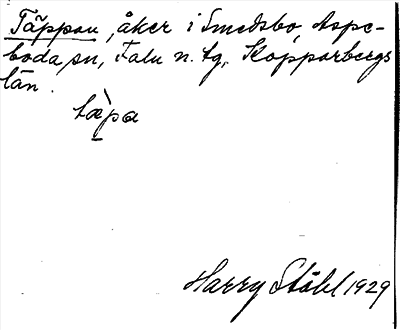 Täppan, åker i Smedsbo, Aspe-
boda sn, Falu n. tg, Kopparbergs
län.
tæ̀pa
Harry Ståhl 1929